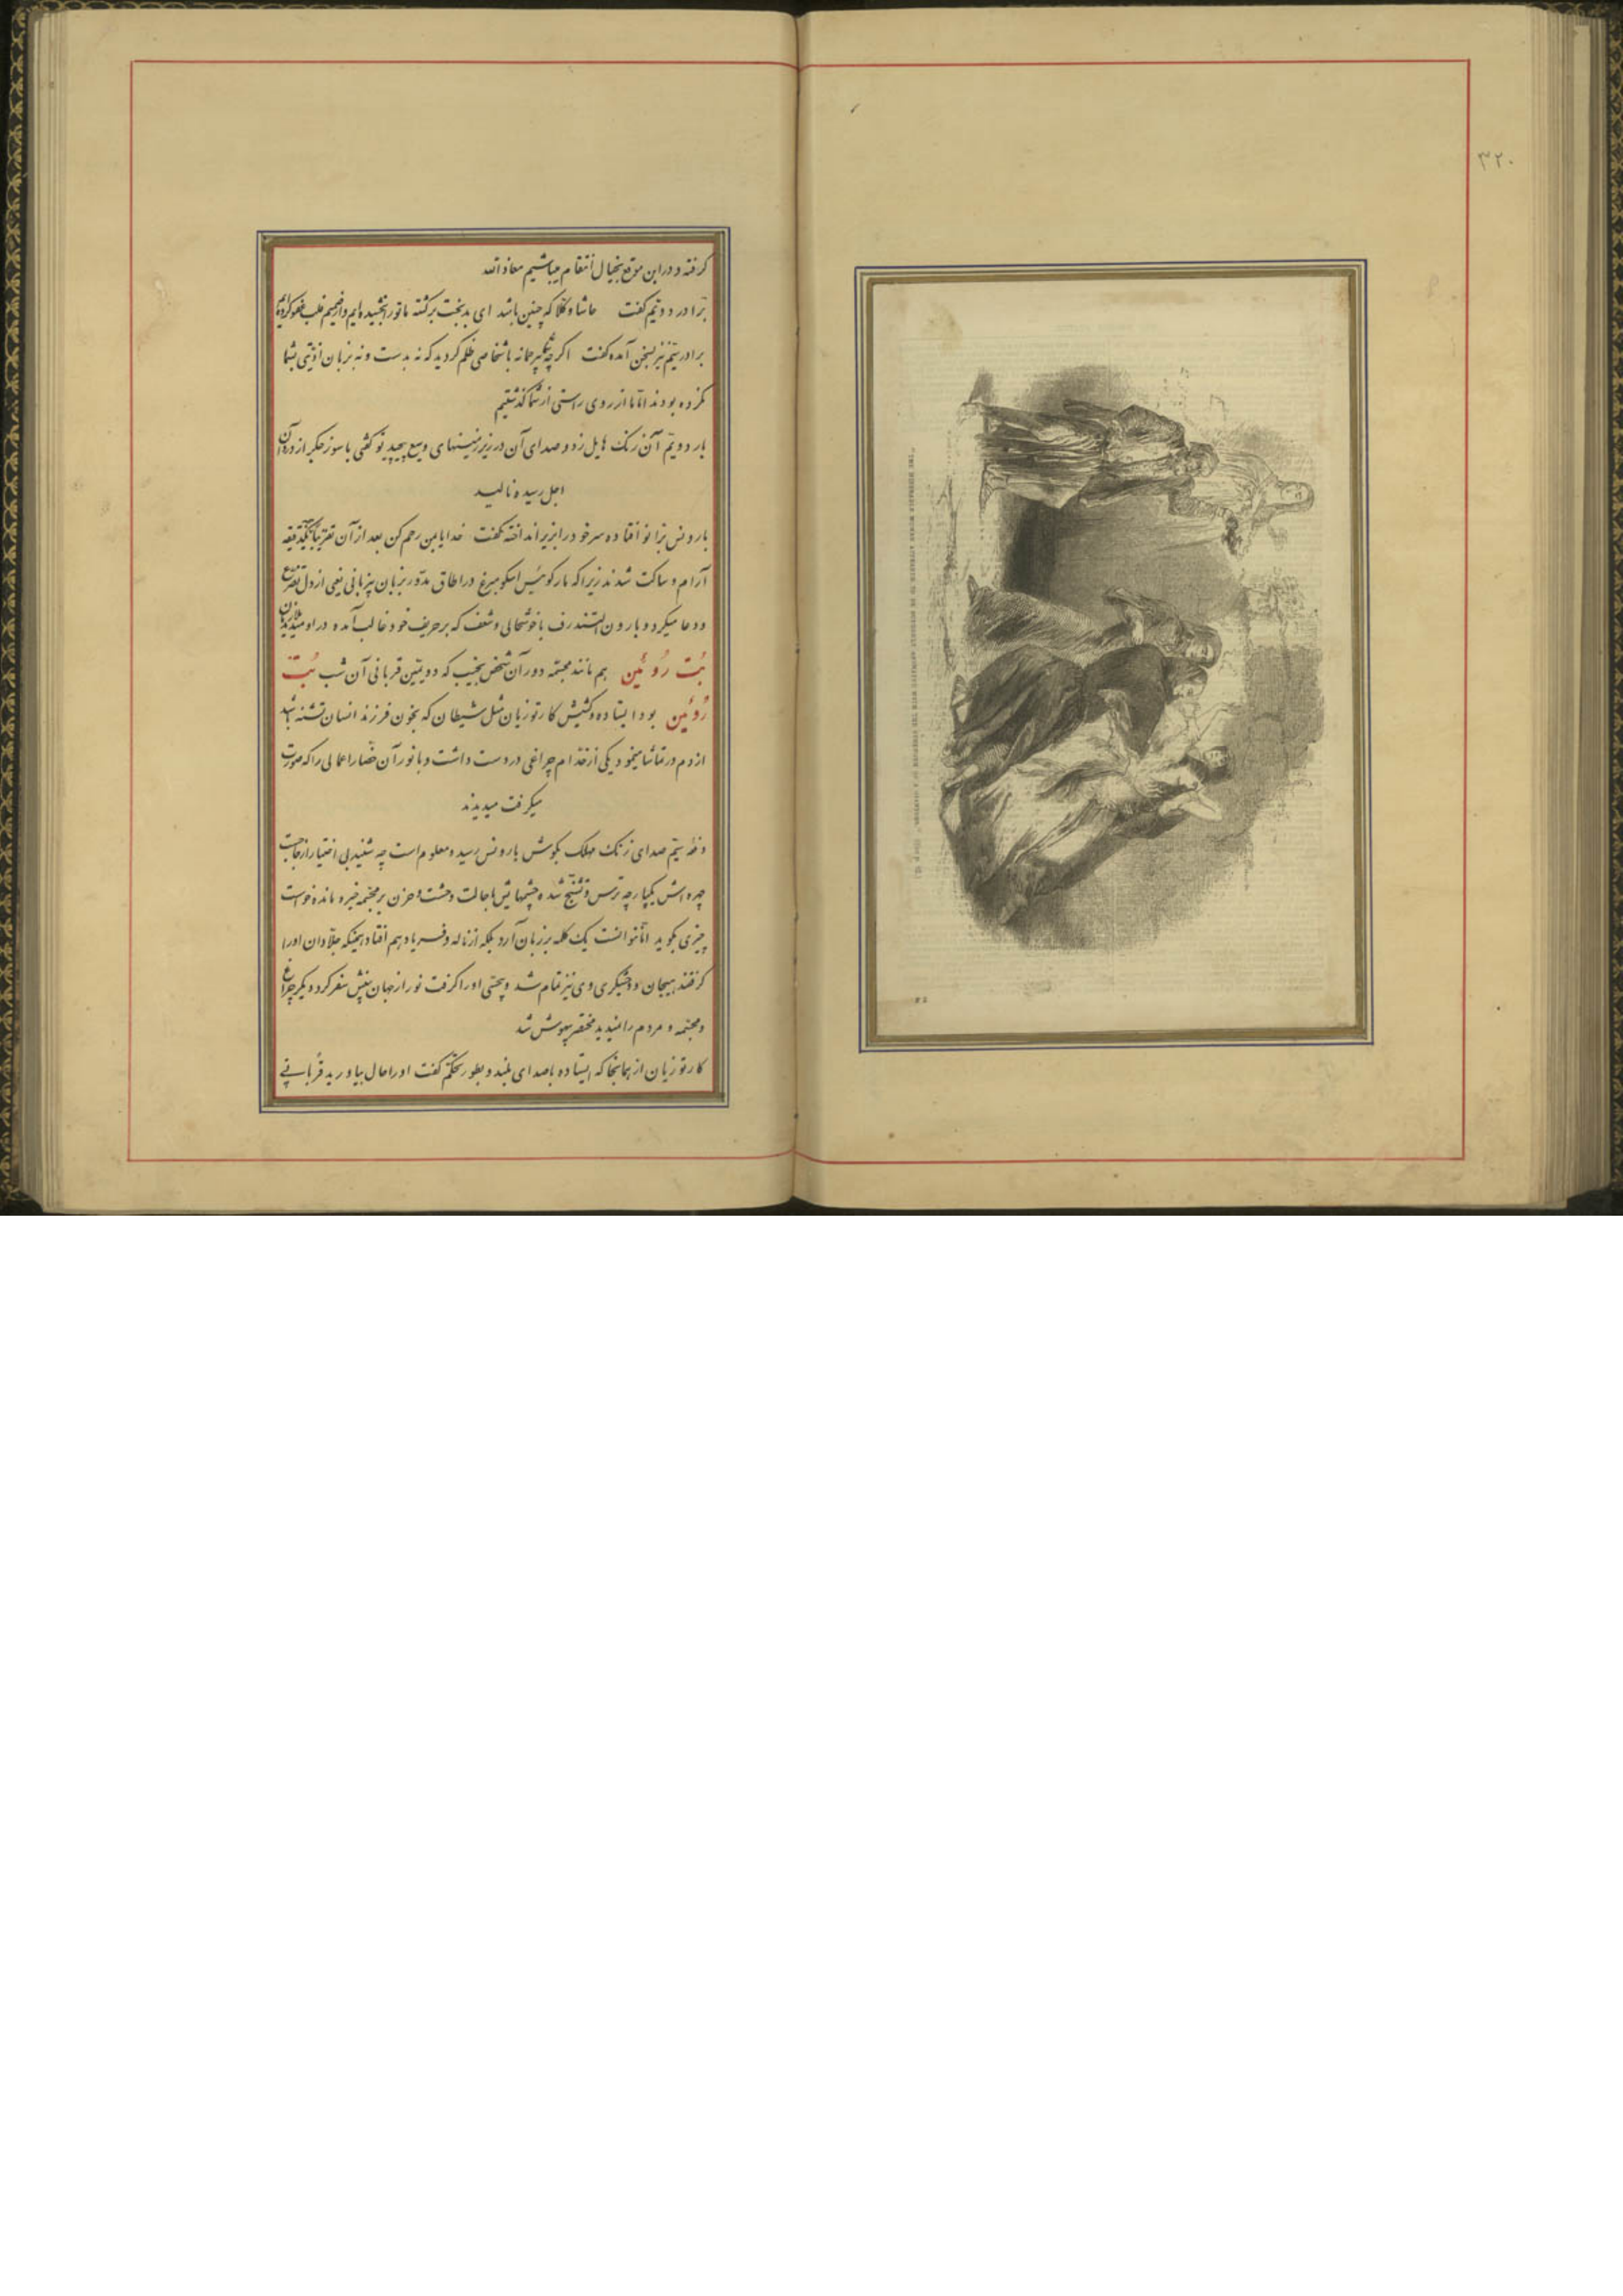 ۳۲۰
گرفته و در این موقع بخیال انتقام میباشیم معاذ الله
برادر دویّم گفت حاشا و کلّا که چنین باشد ای بدبخت برگشته ما تو را بخشیده‌ایم و از صمیم قلب عفو کرده‌ایم
برادر سیّم نیز بسخن آمده گفت اگر چه بیرحمانه باشخاصی ظلم کردید که نه بدست و نه بزبان اذیّتی بشما
نکرده بودند امّا ما از روی راستی از شما گذشتیم
بار دویّم آن زنگ هایل زد و صدای آن در زیرزمینهای وسیع پیچید تو گفتی با سوز جگر از درون آن
اجل رسیده نالید
بارونس بزانو افتاده سر خود را بزیر انداخته گفت خدایا بمن رحم کن بعد از آن تقریباً یکدقیقه
آرام و ساکت شدند زیرا که مارکوئیس اسکومبرغ در اطاق مدوّر بزبان بیزبانی یعنی از دل تضرّع
و دعا میکرد و بارون التندرف با خوشحالی و شعف که بر حریف خود غالب آمده در او میدید
بُت رُوئین هم مانند مجسّمه دور آن شخص نجیب که دویّمین قربانی آن شب بُت
رُوئین بود ایستاده و کشیش کارتوزیان مثل شیطان که بخون فرزند انسان تشنه باشد
از دم در تماشا مینمود یکی از خدّام چراغی در دست داشت و با نور آن حضّار اعمالی را که صورت
میگرفت میدیدند
دفعه سیّم صدای زنگ مهلک بگوش بارونس رسید و معلوم است چه شنید بی اختیار از جا جست
چهره‌اش یکپارچه ترس و تشنّج شده چشمهایش با حالت وحشت و حزن بر مجسّمه خیره مانده خواست
چیزی بگوید امّا نتوانست یک کلمه بر زبان آرد بلکه از ناله و فریاد هم افتاد همینکه جلّادان او را
گرفتند هیجان و وحشیگری وی نیز تمام شد و بیحسّی او را گرفت نور از جهان بینش سفر کرد دیگر چراغ
و مجسّمه و مردم را ندید مختصر بیهوش شد
کارتوزیان از همانجا که ایستاده با صدای بلند و بطور تحکّم گفت او را حال بیاورید قربانی